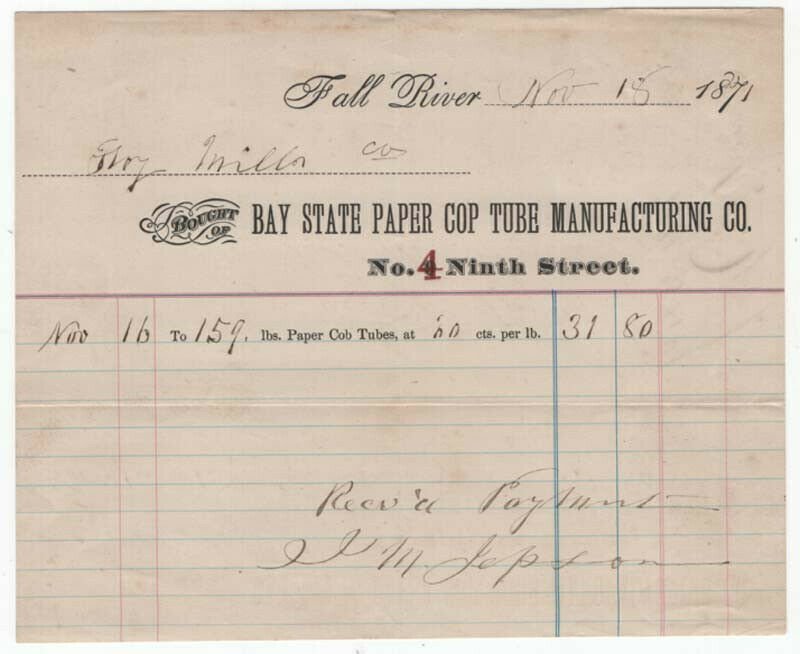 Fall River Nov 18 1871
Troy Mills Co
BOUGHT OF BAY STATE PAPER COP TUBE MANUFACTURING CO.
No. 4 Ninth Street.
Nov 16 To 159. lbs. Paper Cob Tubes, at 20 cts. per lb. 31 80
Recv'd Payment
J M. Jepson